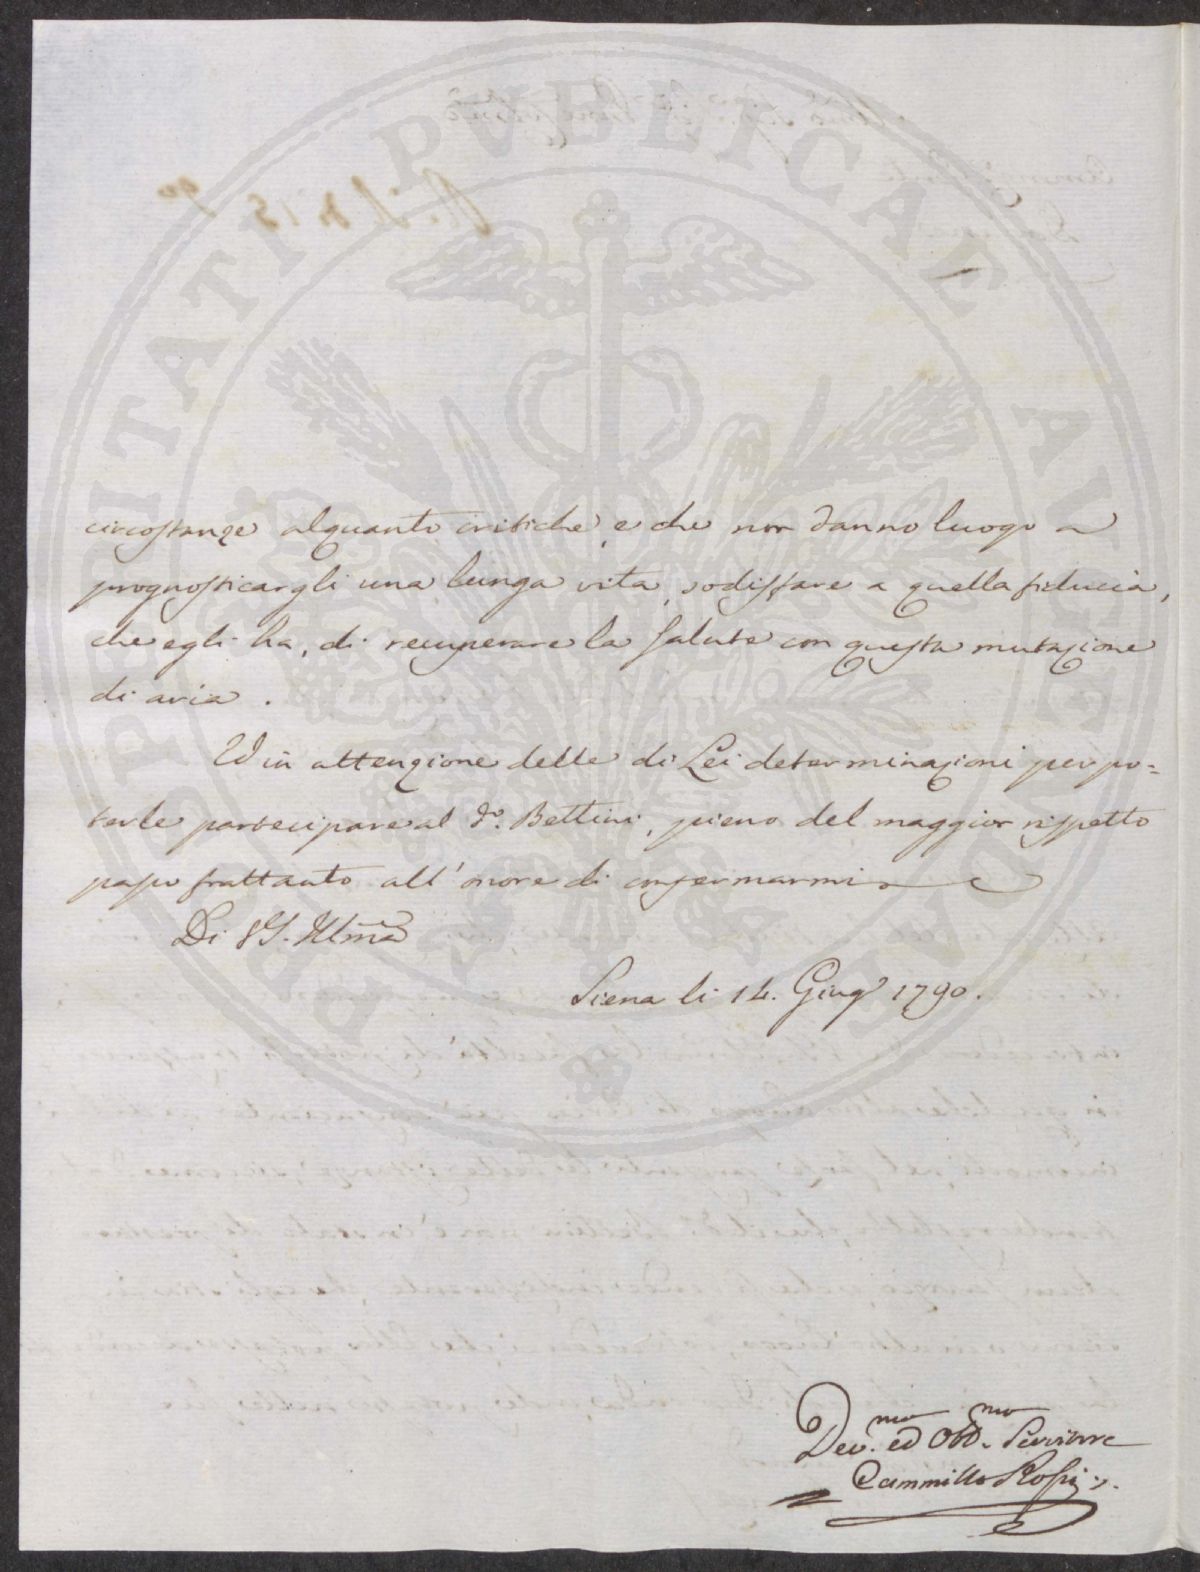 PROSPERITATI PUBLICAE AUGENDAE
circostanze alquanto critiche, e che non danno luogo a
prognosticargli una lunga vita, sodisfare a quella fiducia,
che egli ha, di recuperare la salute con questa mutazione
di aria.
Ed in attenzione delle di Lei determinazioni per po=
terle partecipare al do. Bettini, pieno del maggior rispetto
passo frattanto all'onore di confermarmi
Di VS. Illma
Siena li 14. Giugo 1790.
Devmo. ed Obbmo. Servitore
Cammillo Rossi